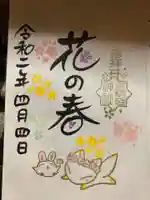 花の春
令和二年 四月四日